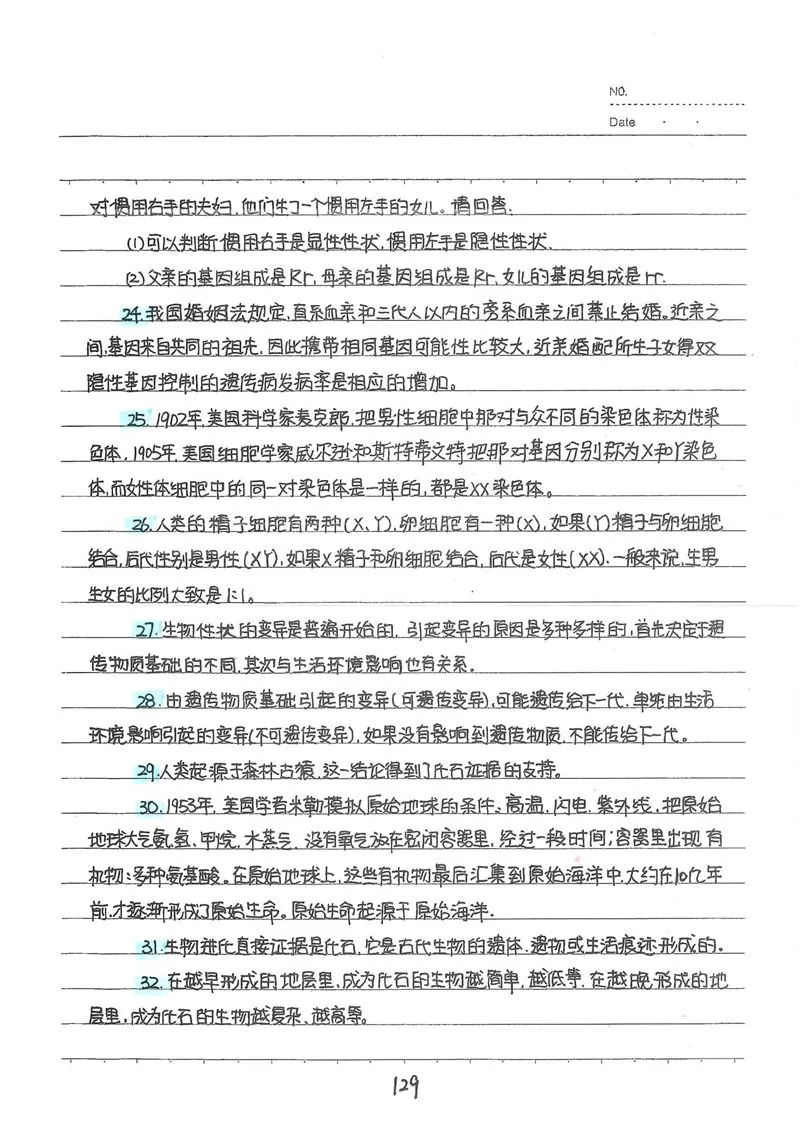 NO.
Date
对惯用右手的夫妇,他们生了一个惯用左手的女儿。请回答:
(1)可以判断惯用右手是显性性状,惯用左手是隐性性状.
(2)父亲的基因组成是Rr,母亲的基因组成是Rr,女儿的基因组成是rr.
24.我国婚姻法规定,直系血亲和三代人以内的旁系血亲之间禁止结婚。近亲之
间,基因来自共同的祖先,因此携带相同基因可能性比较大,近亲婚配所生子女得双
隐性基因控制的遗传病发病率是相应的增加。
25.1902年,美国科学家麦克郎,把男性细胞中那对与众不同的染色体称为性染
色体,1905年,美国细胞学家威尔逊和斯特蒂文特把那对基因分别称为X和Y染色
体,而女性体细胞中的同一对染色体是一样的,都是XX染色体。
26.人类的精子细胞有两种(X、Y),卵细胞有一种(X),如果(Y)精子与卵细胞
结合,后代性别是男性(XY),如果X精子和卵细胞结合,后代是女性(XX).一般来说,生男
生女的比例大致是1:1。
27.生物性状的变异是普遍开始的,引起变异的原因是多种多样的,首先决定于遗
传物质基础的不同,其次与生活环境影响也有关系.
28.由遗传物质基础引起的变异(可遗传变异),可能遗传给下一代,单纯由生活
环境影响引起的变异(不可遗传变异),如果没有影响到遗传物质,不能传给下一代。
29.人类起源于森林古猿,这一结论得到了化石证据的支持。
30.1953年,美国学者米勒模拟原始地球的条件、高温、闪电、紫外线,把原始
地球大气氨、氢、甲烷、水蒸气,没有氧气放在密闭容器里,经过一段时间;容器里出现有
机物:多种氨基酸。在原始地球上,这些有机物最后汇集到原始海洋中,大约在10亿年
前,才逐渐形成了原始生命。原始生命起源于原始海洋.
31.生物进化直接证据是化石,它是古代生物的遗体、遗物或生活痕迹形成的。
32.在越早形成的地层里,成为化石的生物越简单,越低等.在越晚形成的地
层里,成为化石的生物越复杂、越高等。
129